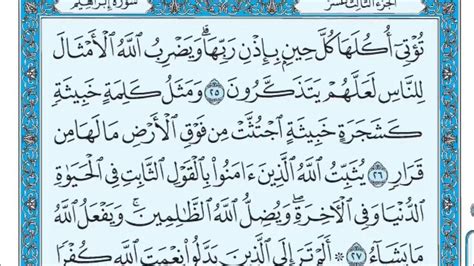 سورة إبراهيم الجزء الثالث عشر
تُؤْتِيٓ أُكُلَهَا كُلَّ حِينٍۭ بِإِذْنِ رَبِّهَاۗ وَيَضْرِبُ ٱللَّهُ ٱلْأَمْثَالَ
لِلنَّاسِ لَعَلَّهُمْ يَتَذَكَّرُونَ ٢٥ وَمَثَلُ كَلِمَةٍ خَبِيثَةٍ
كَشَجَرَةٍ خَبِيثَةٍ ٱجْتُثَّتْ مِن فَوْقِ ٱلْأَرْضِ مَا لَهَا مِن
قَرَارٍ ٢٦ يُثَبِّتُ ٱللَّهُ ٱلَّذِينَ ءَامَنُوا۟ بِٱلْقَوْلِ ٱلثَّابِتِ فِي ٱلْحَيَوٰةِ
ٱلدُّنْيَا وَفِي ٱلْءَاخِرَةِۖ وَيُضِلُّ ٱللَّهُ ٱلظَّٰلِمِينَۚ وَيَفْعَلُ ٱللَّهُ
مَا يَشَآءُ ٢٧ ۞ أَلَمْ تَرَ إِلَى ٱلَّذِينَ بَدَّلُوا۟ نِعْمَتَ ٱللَّهِ كُفْرًا